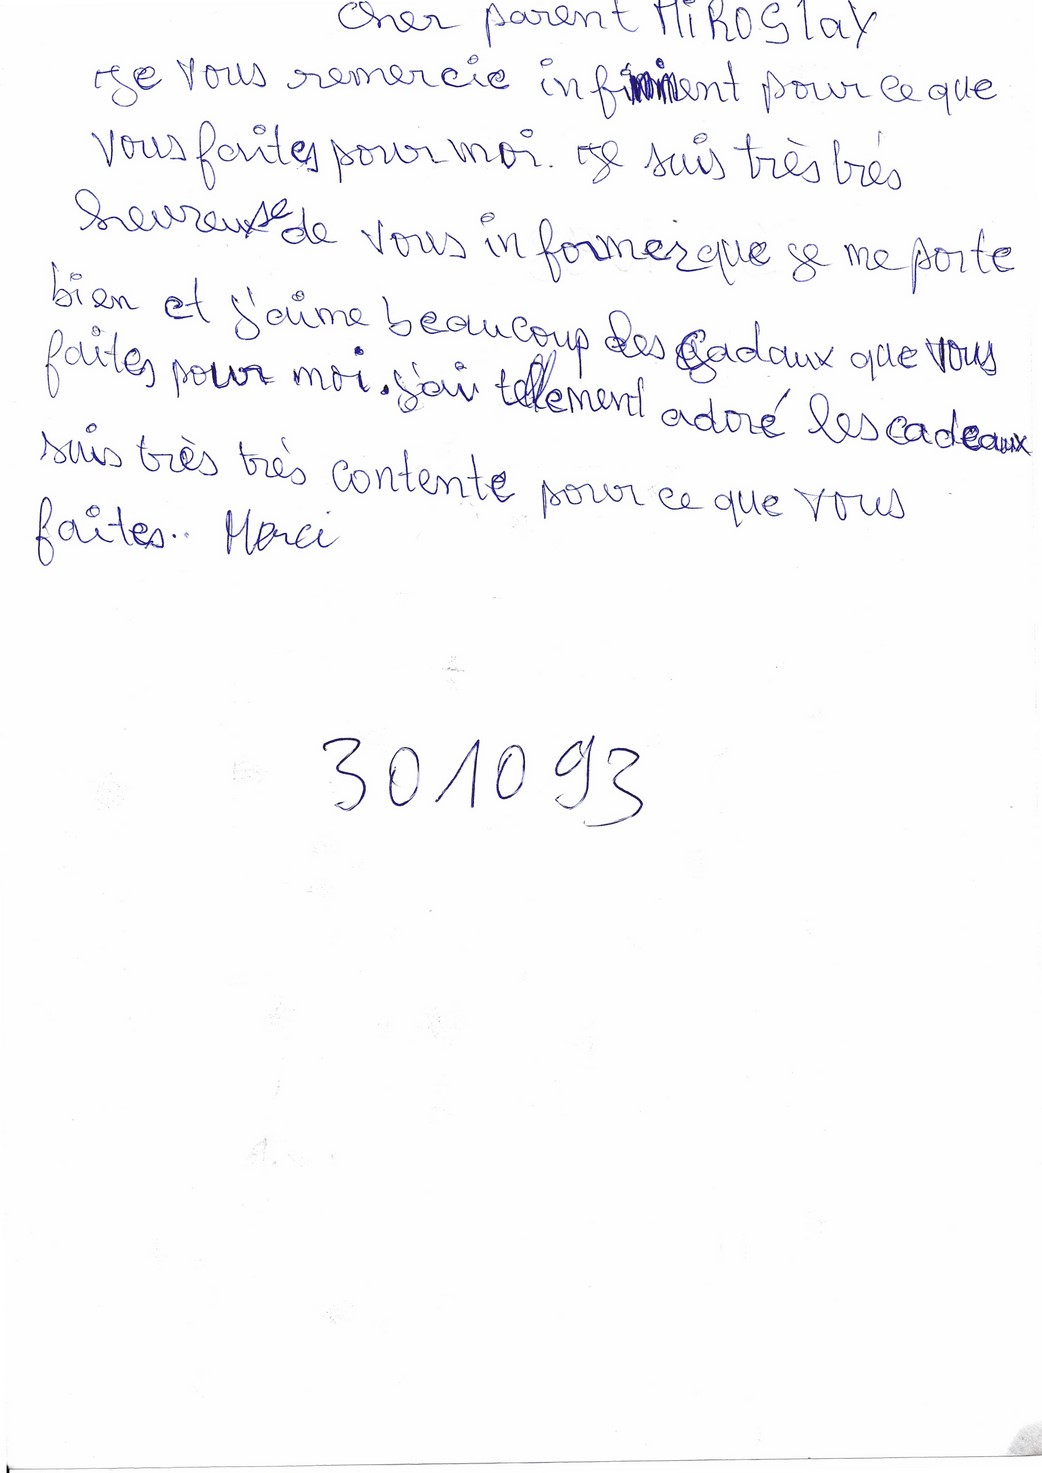 Cher parent MiROSlaY
Je vous remercie infiniment pour ce que
vous faites pour moi. Je suis très très
heureuse de vous informer que je me porte
bien et j'aime beaucoup les cadaux que vous
faites pour moi. j'ai tellement adoré les cadeaux
suis très très contente pour ce que vous
faites.. Merci
301093